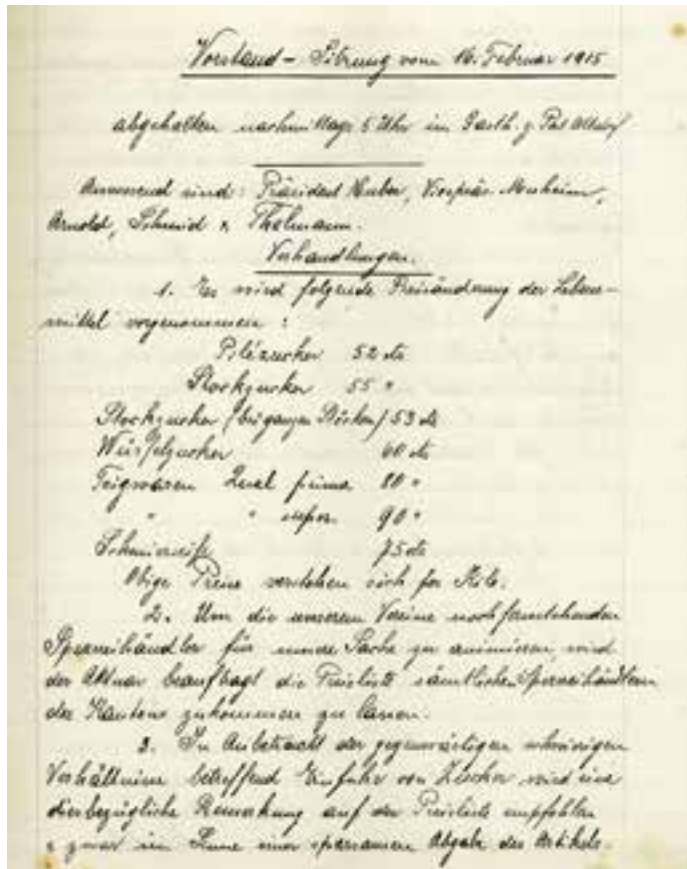 Vorstand - Sitzung vom 16. Februar 1915
abgehalten nachmittags 5 Uhr im Gasth. z. Post Altdorf
Anwesend sind: Präsident Huber, Vizepräs. Musheim,
Arnold, Schmid & Thalmann.
Verhandlungen.
1. Es wird folgende Preisänderung der Lebens-
mittel vorgenommen:
Pilézucker 52 cts
Stockzucker 55 "
Stockzucker (bei ganzen Stöcken) 53 cts
Würfelzucker 60 cts
Teigwaren Qual prima 80 "
" " super. 90 "
Schmierseife 75 cts
Obige Preise verstehen sich per Kilo.
2. Um die unserem Vereine noch fernstehenden
Spezereihändler für unsere Sache zu animieren, wird
der Aktuar beauftragt die Preisliste sämtlichen Spezereihändlern
des Kantons zukommen zu lassen.
3. In Anbetracht der gegenwärtigen schwierigen
Verhältnisse betreffend Einfuhr von Zucker wird eine
diesbezügliche Bemerkung auf der Preisliste empfohlen
& zwar im Sinne einer sparsamen Abgabe des Artikels.